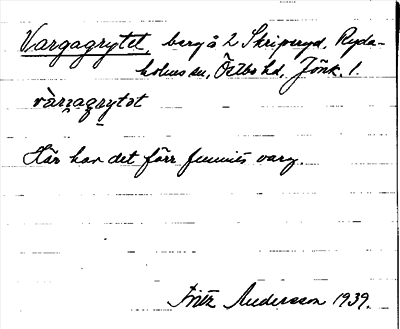 Vargagrytet, berg å 2 Skriperyd, Ryda-
holms sn, Östbo hd, Jönk. l.
vàrgagrytət
Här har det förr funnits varg.
Fritz Andersson 1939.